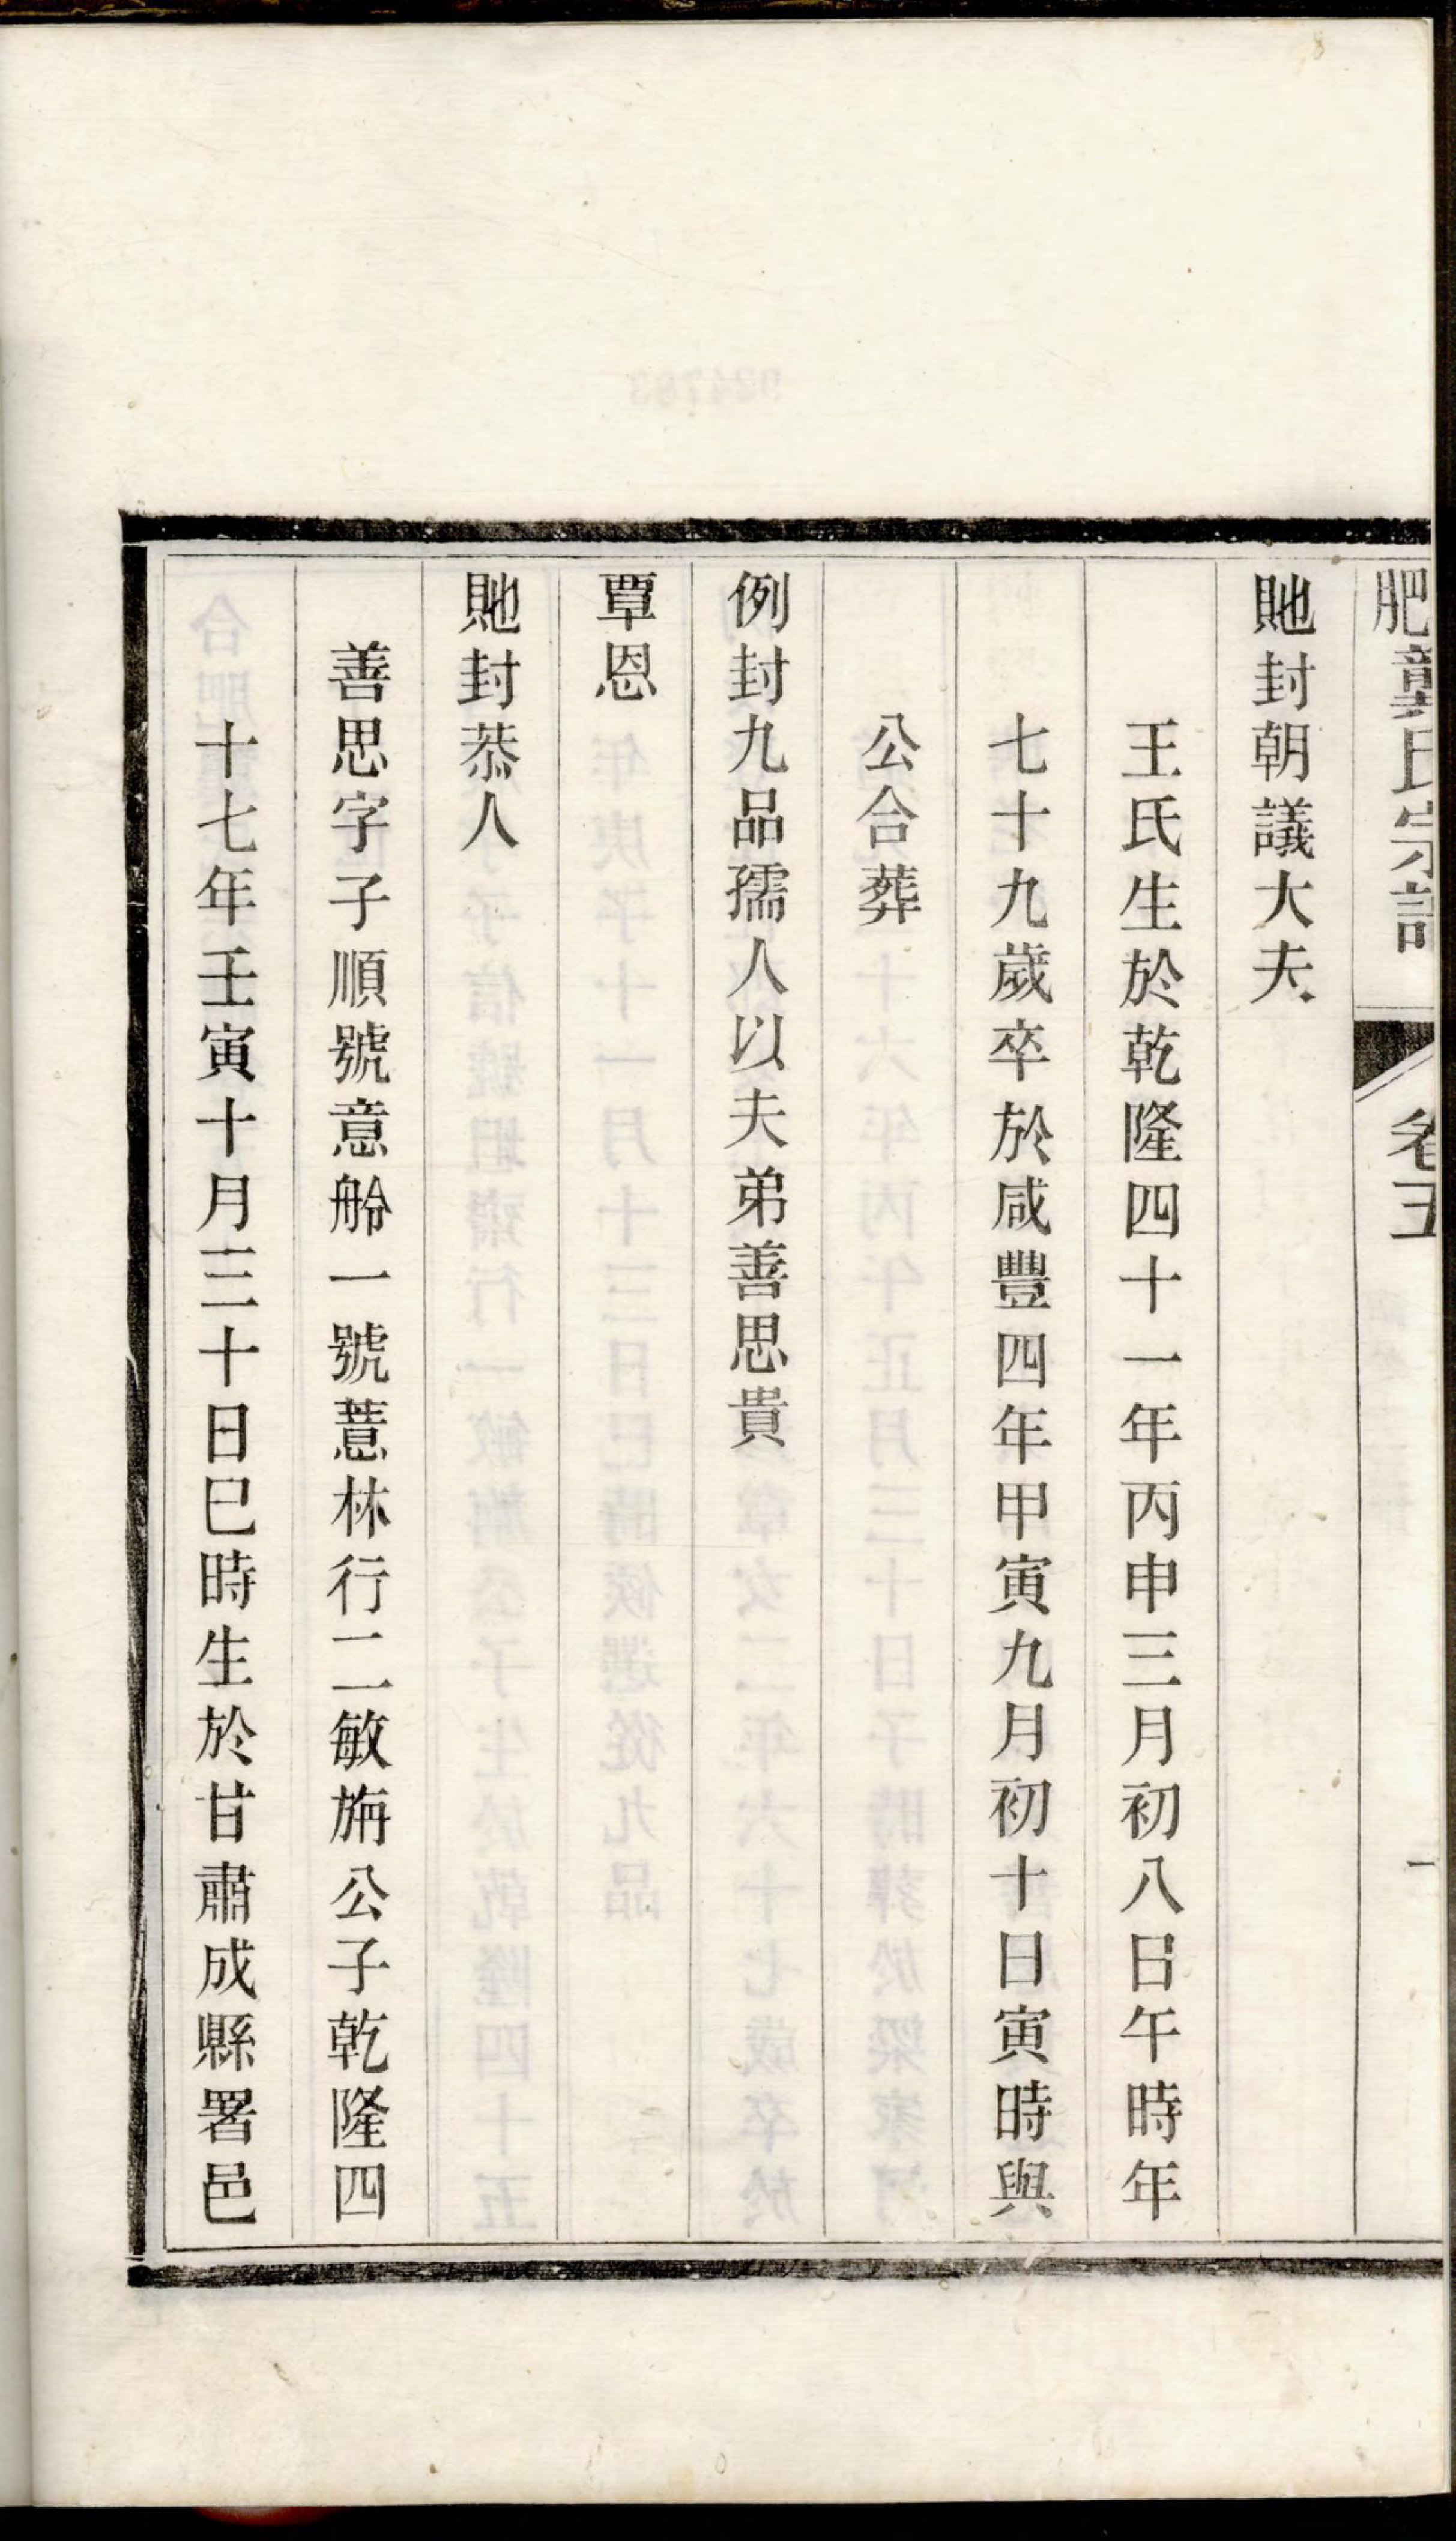 肥龔氏宗譜 卷五 一
貤封朝議大夫
王氏生於乾隆四十一年丙申三月初八日午時年
七十九歲卒於咸豐四年甲寅九月初十日寅時與
公合葬
例封九品孺人以夫弟善思貴
覃恩
貤封恭人
善思字子順號意舲一號薏林行二敏旃公子乾隆四
十七年壬寅十月三十日巳時生於甘肅成縣署邑